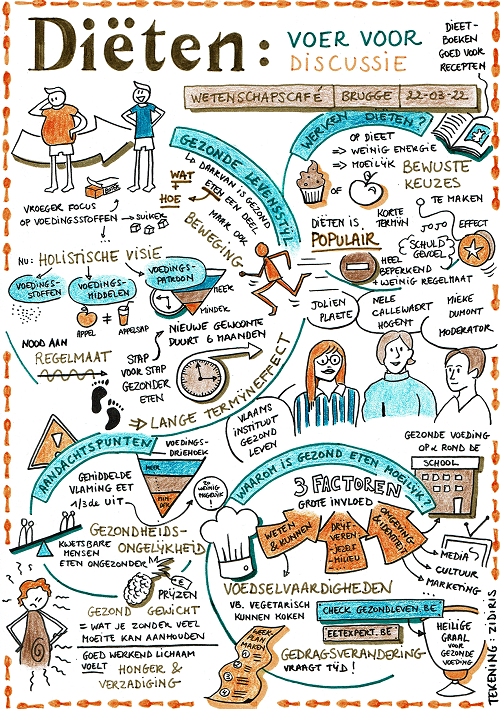 Diëten:
VOER VOOR
DISCUSSIE
DIEET-
BOEKEN
GOED VOOR
RECEPTEN
WETENSCHAPSCAFÉ | BRUGGE | 22-03-22
VROEGER FOCUS
OP VOEDINGSSTOFFEN
→ SUIKER
NU: HOLISTISCHE VISIE
VOEDINGS-
STOFFEN
VOEDINGS-
MIDDELEN
VOEDINGS-
PATROON
APPEL
≠
APPELSAP
MEER
MINDER
NOOD AAN
REGELMAAT
STAP
VOOR STAP
GEZONDER
ETEN
NIEUWE GEWOONTE
DUURT 6 MAANDEN
⇒ LANGE TERMIJNEFFECT
GEZONDE LEVENSSTIJL
↳ DAARVAN IS GEZOND
ETEN EEN DEEL
WAT
+
HOE
MAAR OOK
BEWEGING
WERKEN DIËTEN?
OP DIEET
⇒ WEINIG ENERGIE
⇒ MOEILIJK
BEWUSTE
KEUZES
TE MAKEN
OF
DIËTEN IS
POPULAIR
KORTE
TERMIJN
EFFECT
JOJO
SCHULD-
GEVOEL
HEEL
BEPERKEND
+ WEINIG REGELMAAT
JOLIEN
PLAETE
NELE
CALLEWAERT
HOGENT
MIEKE
DUMONT
MODERATOR
VLAAMS
INSTITUUT
GEZOND
LEVEN
AANDACHTSPUNTEN
VOEDINGS-
DRIEHOEK
MEER
MIN-
DER
ZO
WEINIG
MOGELIJK
!
GEMIDDELDE
VLAMING EET
1/3de UIT
GEZONDHEIDS-
ONGELIJKHEID
KWETSBARE
MENSEN
ETEN ONGEZONDER
€
PRIJZEN
GEZOND GEWICHT
= WAT JE ZONDER VEEL
MOEITE KAN AANHOUDEN
GOED WERKEND LICHAAM
VOELT HONGER &
VERZADIGING
WAAROM IS GEZOND ETEN MOEILIJK?
3 FACTOREN
GROTE INVLOED
WETEN
& KUNNEN
DRIJF-
VEREN:
-JEZELF
-MILIEU
OMGEVING
& IDENTITEIT
GEZONDE VOEDING
OP & ROND DE
SCHOOL
MEDIA
CULTUUR
MARKETING
VOEDSELVAARDIGHEDEN
VB. VEGETARISCH
KUNNEN KOKEN
CHECK GEZONDLEVEN.BE
EETEXPERT.BE
GEDRAGSVERANDERING
VRAAGT TIJD!
PLAN
MAKEN
HEILIGE
GRAAL
VOOR
GEZONDE
VOEDING
TEKENING - ZIDIRIS